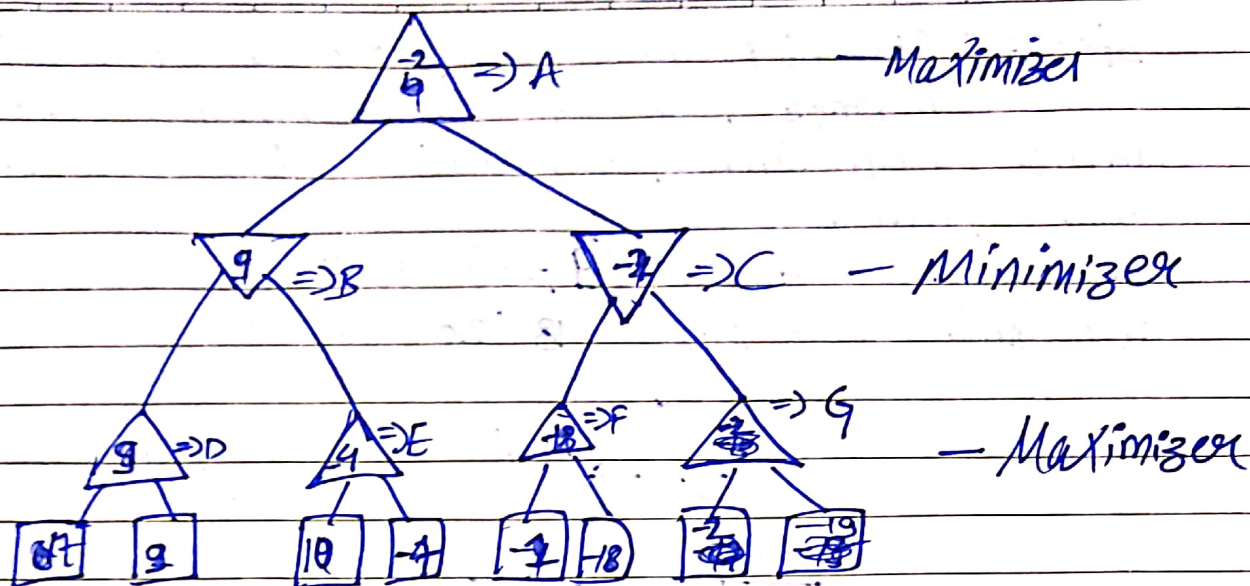 -2
9 => A - Maximizer
9 => B
=> C - Minimizer
9 => D
=> E
-18 => F
=> G - Maximizer
9
10
-18
-2
-19